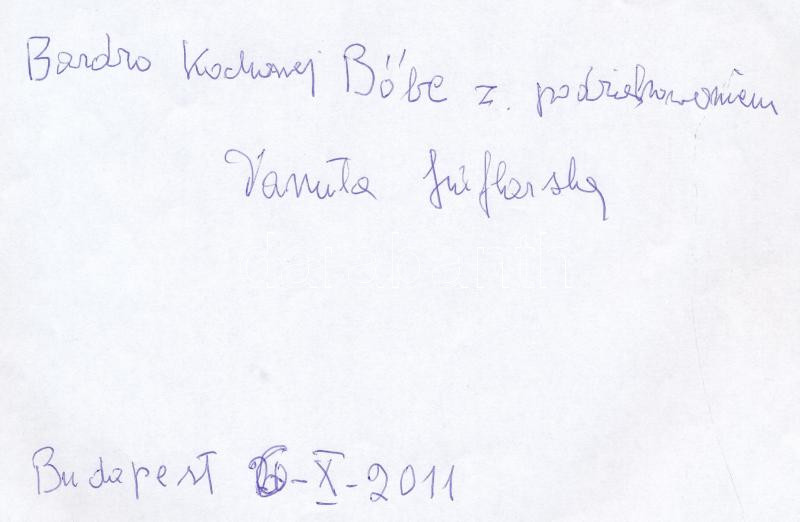 Bardzo Kochanej Böbe z. podziękowaniem
Danuta Szaflarska
Budapest 26-X-2011